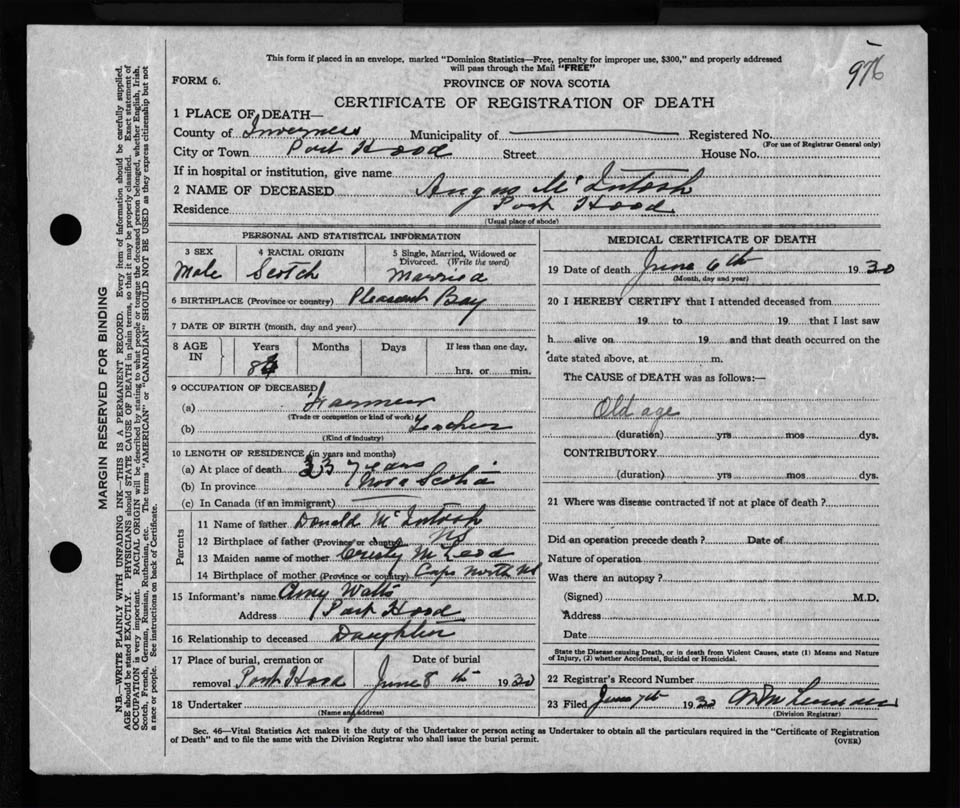 This form if placed in an envelope, marked "Dominion Statistics—Free, penalty for improper use, $300," and properly addressed
will pass through the Mail "FREE"
976
FORM 6.
PROVINCE OF NOVA SCOTIA
CERTIFICATE OF REGISTRATION OF DEATH
1 PLACE OF DEATH—
County of Inverness Municipality of Registered No.
(For use of Registrar General only)
City or Town Port Hood Street House No.
If in hospital or institution, give name
2 NAME OF DECEASED Angus McIntosh
Residence Port Hood
(Usual place of abode)
PERSONAL AND STATISTICAL INFORMATION
3 SEX 4 RACIAL ORIGIN 5 Single, Married, Widowed or
Divorced. (Write the word)
Male Scotch Married
6 BIRTHPLACE (Province or country) Pleasant Bay
7 DATE OF BIRTH (month, day and year)
8 AGE IN Years Months Days If less than one day.
hrs. or min.
9 OCCUPATION OF DECEASED
(a) Farmer
(Trade or occupation or kind of work)
(b) Teacher
(Kind of industry)
10 LENGTH OF RESIDENCE (in years and months)
(a) At place of death 33 years
(b) In province Nova Scotia
(c) In Canada (if an immigrant)
Parents
11 Name of father Donald McIntosh
12 Birthplace of father (Province or country) NS
13 Maiden name of mother Cristy McLeod
14 Birthplace of mother (Province or country) Cape North NS
15 Informant's name Amy Watts
Address Port Hood
16 Relationship to deceased Daughter
17 Place of burial, cremation or Date of burial
removal Port Hood June 8th 1930
18 Undertaker
(Name and address)
MEDICAL CERTIFICATE OF DEATH
19 Date of death June 6th 1930
(Month, day and year)
20 I HEREBY CERTIFY that I attended deceased from
19 to 19 that I last saw
h alive on 19 and that death occurred on the
date stated above, at m.
The CAUSE of DEATH was as follows:—
Old age
(duration) yrs mos dys.
CONTRIBUTORY
(duration) yrs mos dys.
21 Where was disease contracted if not at place of death?
Did an operation precede death? Date of
Nature of operation
Was there an autopsy?
(Signed) M.D.
Address
Date
State the Disease causing Death, or in death from Violent Causes, state (1) Means and Nature
of Injury, (2) whether Accidental, Suicidal or Homicidal.
22 Registrar's Record Number
23 Filed June 7th 1930
(Division Registrar)
Sec. 46—Vital Statistics Act makes it the duty of the Undertaker or person acting as Undertaker to obtain all the particulars required in the "Certificate of Registration
of Death" and to file the same with the Division Registrar who shall issue the burial permit.
(OVER)
MARGIN RESERVED FOR BINDING
N.B.—WRITE PLAINLY WITH UNFADING INK—THIS IS A PERMANENT RECORD. Every item of information should be carefully supplied.
AGE should be stated EXACTLY. PHYSICIANS should STATE CAUSE OF DEATH in plain terms, so that it may be properly classified. Exact statement of
OCCUPATION is very important. RACIAL ORIGIN will be described by stating to what people or tongue the deceased person belonged, whether English, Irish,
Scotch, French, German, Russian, Ruthenian, etc. The terms "AMERICAN" or "CANADIAN" SHOULD NOT BE USED as they express citizenship but not
a race or people. See instructions on back of Certificate.